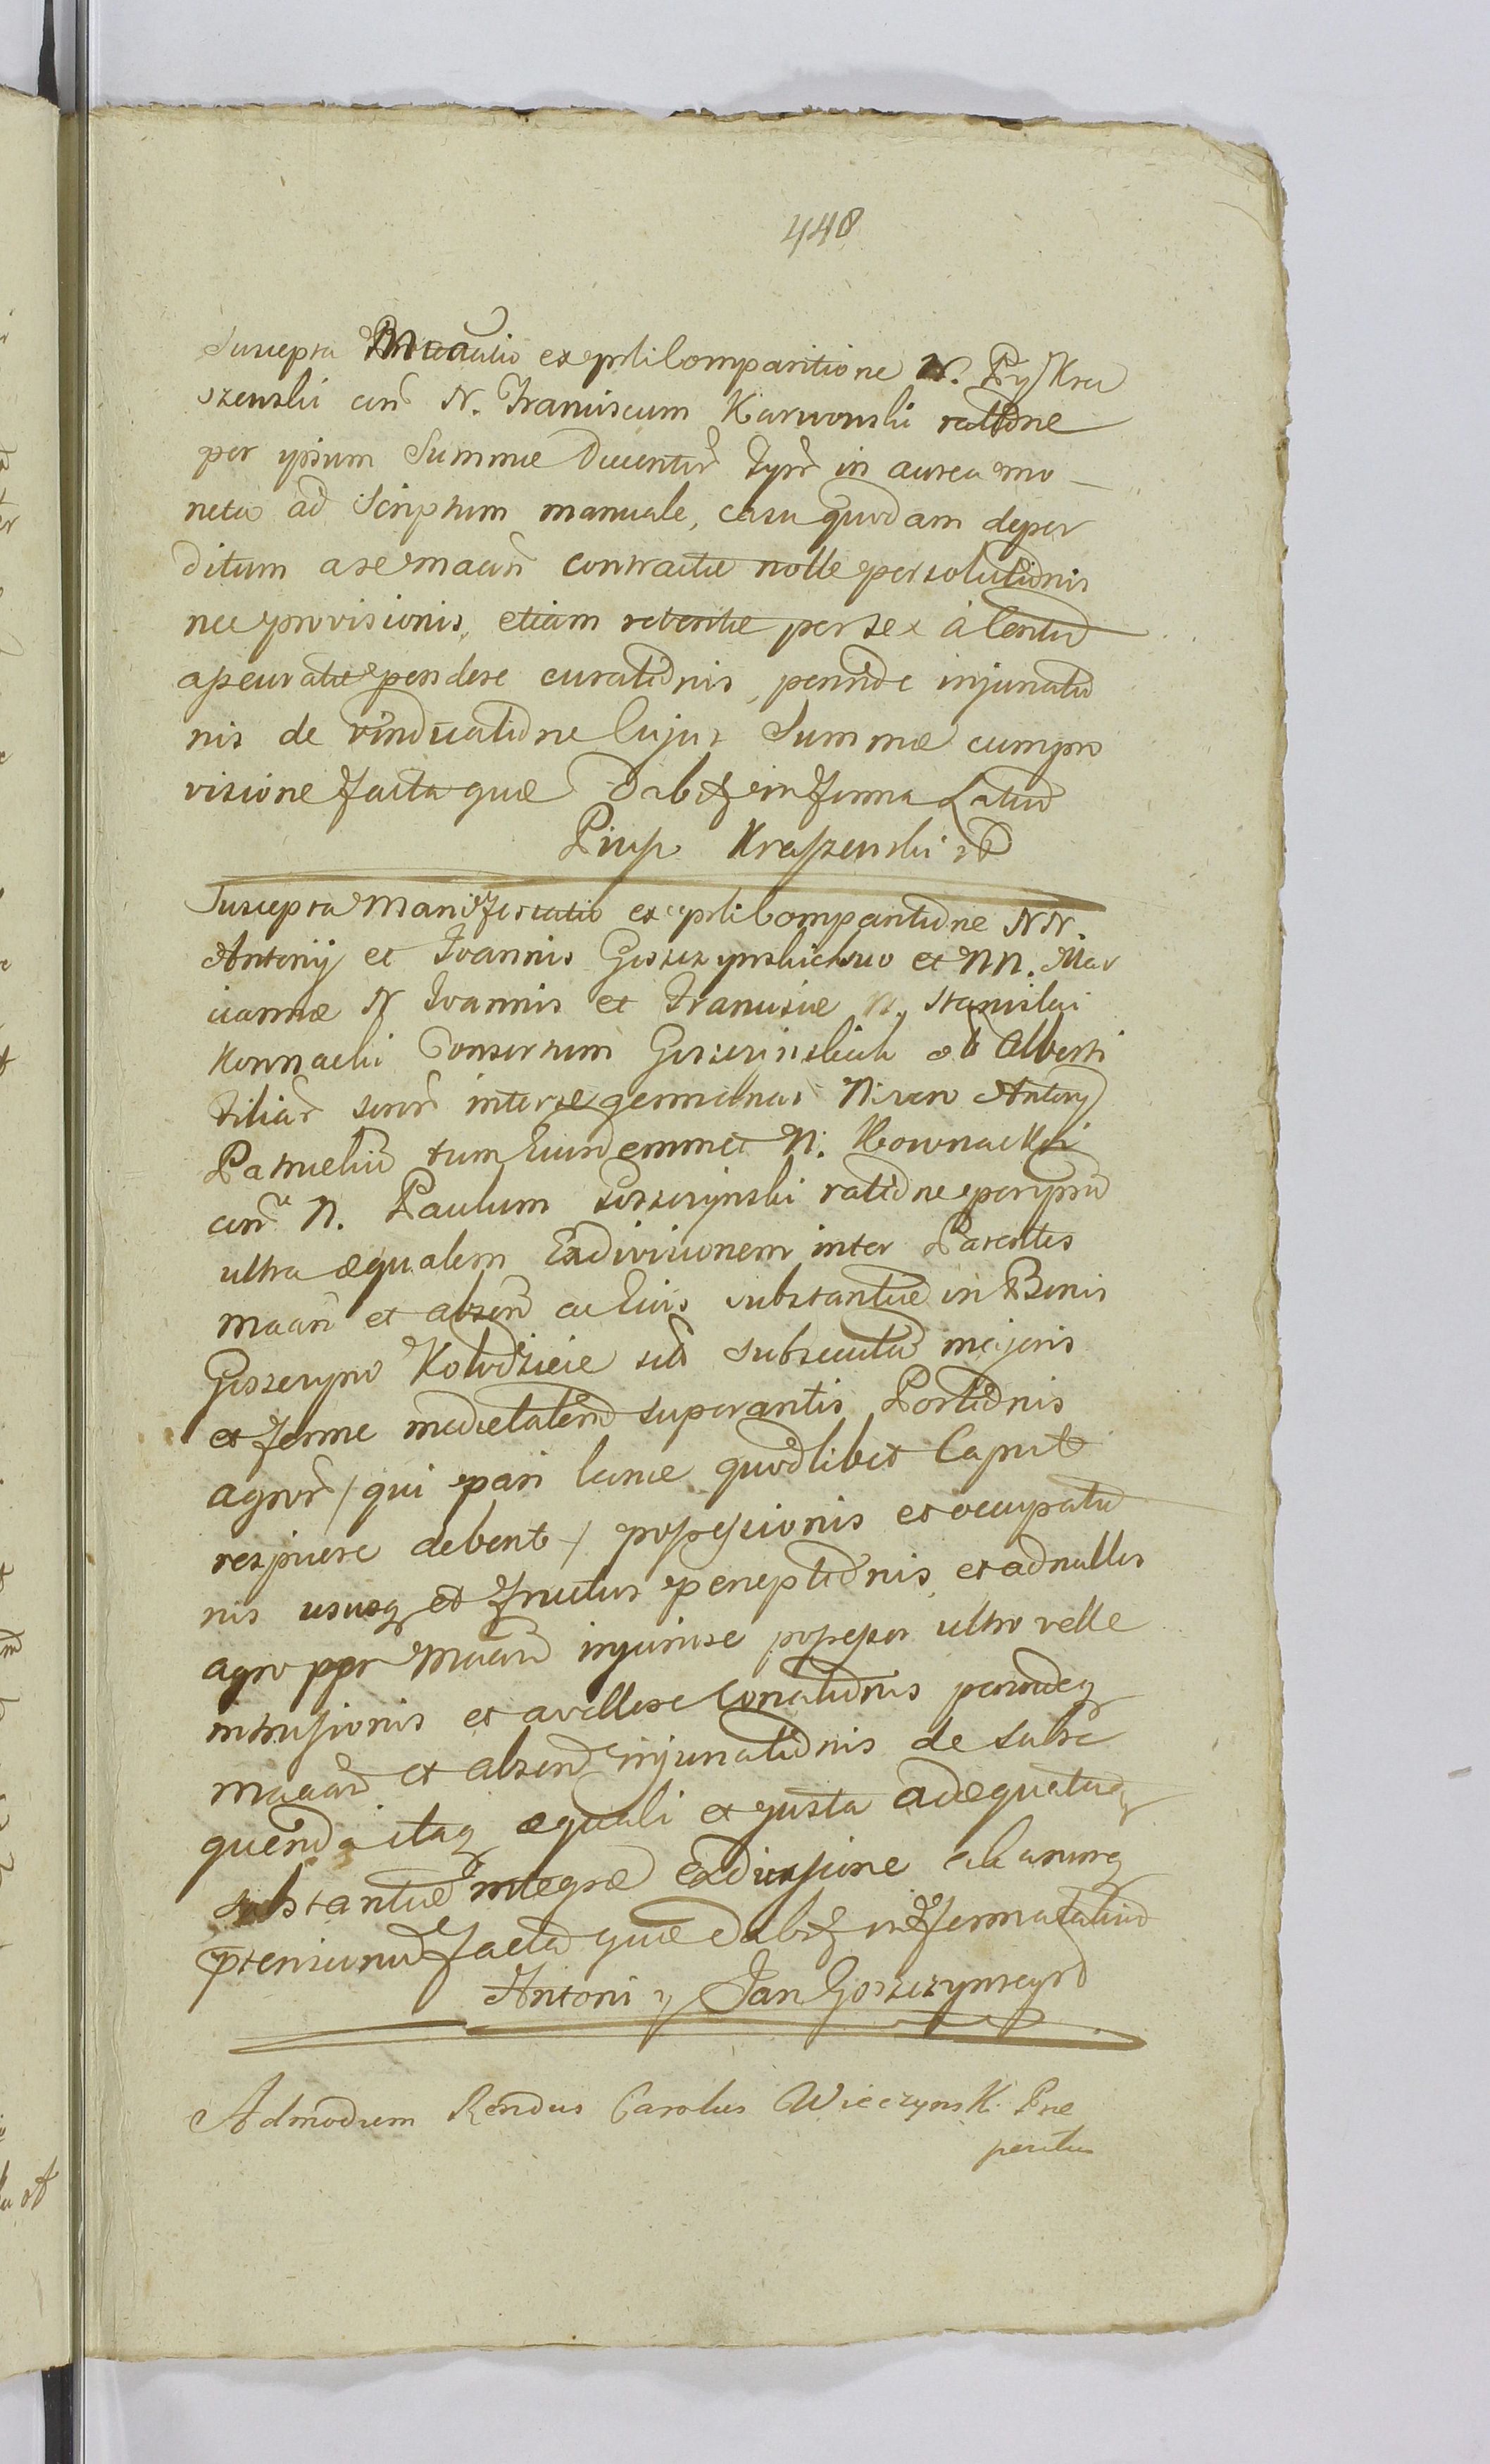 448
Suscepta Mtaõ ex prsti Comparitione N. Pij Kra
szewski con̄ N. Franciscum Karwowski ratione
per ipsum Summæ Ducentor̄ flpr̄ in aurea mo-
neta ad Scriptum manuale, casu quodam deper
ditum a se maān contractæ nolle persolutionis
nec provisionis, etiam retentæ per sex à Centū
assecuratæ pendere curationis, perinde injuriatio
nis de vindicatione hujus Summæ cum pro
visione facta quæ dabitq in forma Latiū
Piusz Kraszewski
Suscepta Manifestatio ex prsti Comparitione NN.
Antonij et Joannis Goszczynskich et NN. Mar
iannæ N Joannis et Franciscæ N. Stanislai
Kownacki Consortum Goszczynskich ol Alberti
Filiar̄ soror̄ inter se germanar N. vero Antonij
Patruelium tum Eiusdemmet N. Kownacki
con̄ N. Paulum Goszczynski ratione per ipsū
ultra æqualem Exdivisionem inter Parentes
maān et absen̄ ac Eius substantiæ in Bonis
Goszczyno Kołodzieie subsecutā majoris
et ferme medietatem superantis Portionis
agror̄ / qui pari lance quodlibet Caput
respicere debent / possessionis et occupatio
nis ususq et fructus perceptionis, et ad nullos
agro ppr maān injuriose possessor ultro velle
intrusionis et avellere Conationis perindeq
maān et absen̄ injuriationis de subse
quenda itaq æquali et justa adæquatuq
substantiæ integræ Exdivisione
facta quæ dabitq in forma Latiū
Antoni y Jan Goszczynscy
Admodum Rēndus Carolus Wieczynski Præ
positus